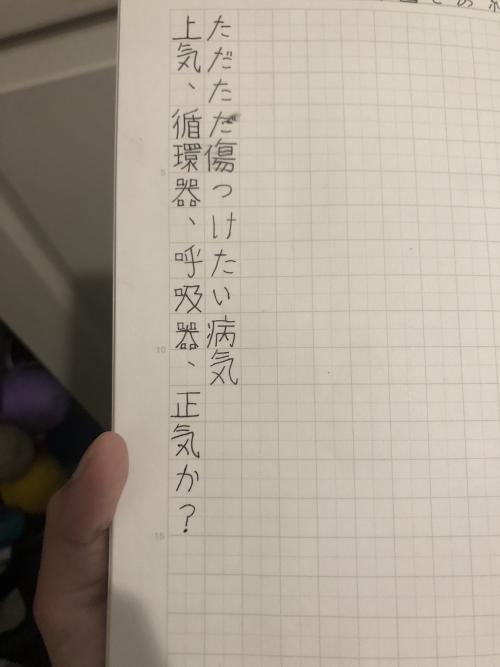 ただただ傷つけたい病気
上気、循環器、呼吸器、正気か？